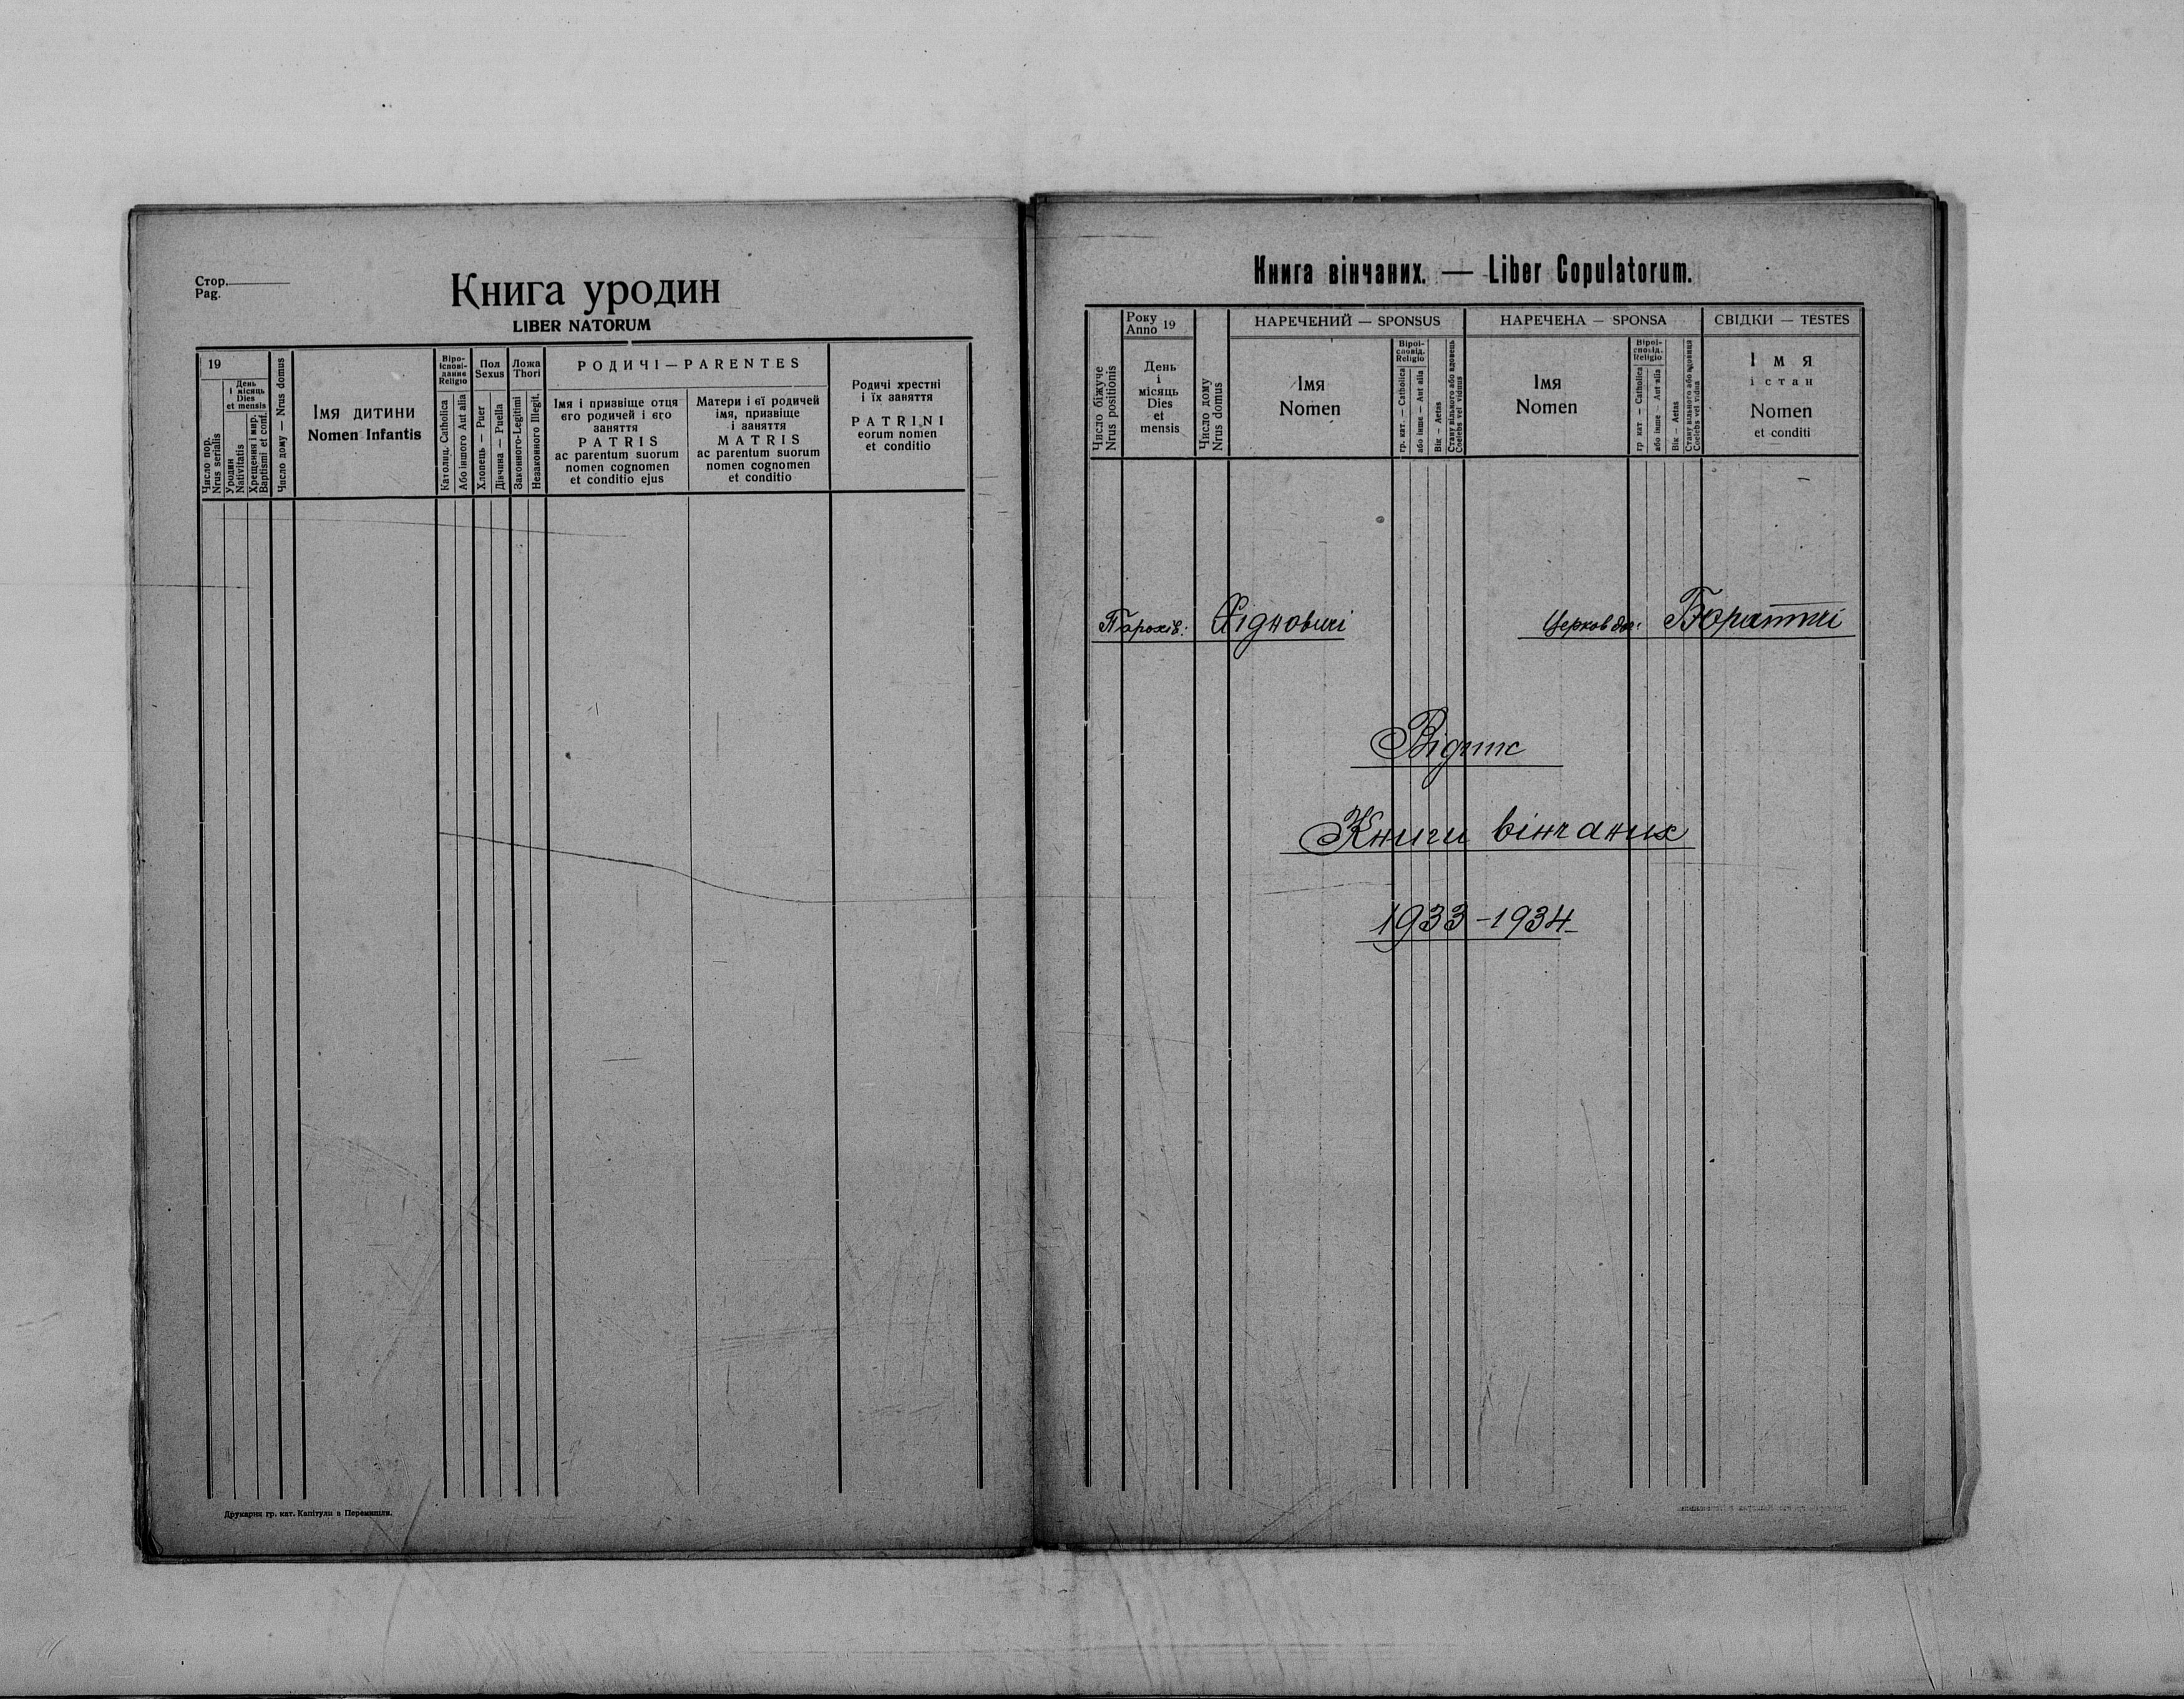 Стор.
Pag.
Книга уродин
LIBER NATORUM
19
День і місяць
Dies et mensis
Число пор.
Nrus serialis
Уродин
Nativitatis
Хрещення і мир.
Baptismi et conf.
Число дому — Nrus domus
Імя дитини
Nomen Infantis
Віро-
іспові-
дання
Religio
Католиц. Catholica
Або іншого Aut alia
Пол
Sexus
Хлопець — Puer
Дівчина — Puella
Ложа
Thori
Законного-Legitimi
Незаконного Illegit.
РОДИЧІ — PARENTES
Імя і призвіще отця
єго родичей і єго
заняття
PATRIS
ac parentum suorum
nomen cognomen
et conditio ejus
Матери і єї родичей
імя, призвіще
і заняття
MATRIS
ac parentum suorum
nomen cognomen
et conditio
Родичі хрестні
і їх заняття
PATRINI
eorum nomen
et conditio
Друкарня гр. кат. Капітули в Перемишли.
Книга вінчаних. — Liber Copulatorum.
Число біжуче
Nrus positionis
Року
Anno 19
День
і
місяць
Dies
et
mensis
Число дому
Nrus domus
НАРЕЧЕНИЙ — SPONSUS
Імя
Nomen
Віроі-
сповід.
Religio
гр. кат. — Catholica
або інше — Aut alia
Вік — Aetas
Стану вільного або вдовець
Coelebs vel viduus
НАРЕЧЕНА — SPONSA
Імя
Nomen
Віроі-
сповід.
Religio
гр кат — Catholica
або інше — Aut alia
Вік — Aetas
Стану вільного або вдовиця
Coelebs vel vidua
СВІДКИ — TESTES
Імя
і стан
Nomen
et conditi
Парохія: Хідновичі
Церков доч: Боратичі
Відпис
Книги вінчаних
1933-1934